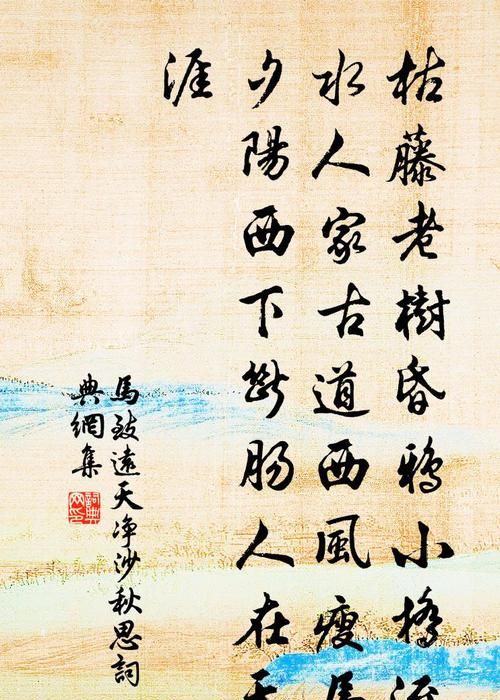 枯藤老樹昏鴉小橋流
水人家古道西風瘦馬
夕陽西下斷腸人在天
涯
馬致遠天净沙秋思詞
典網集
詞典網印